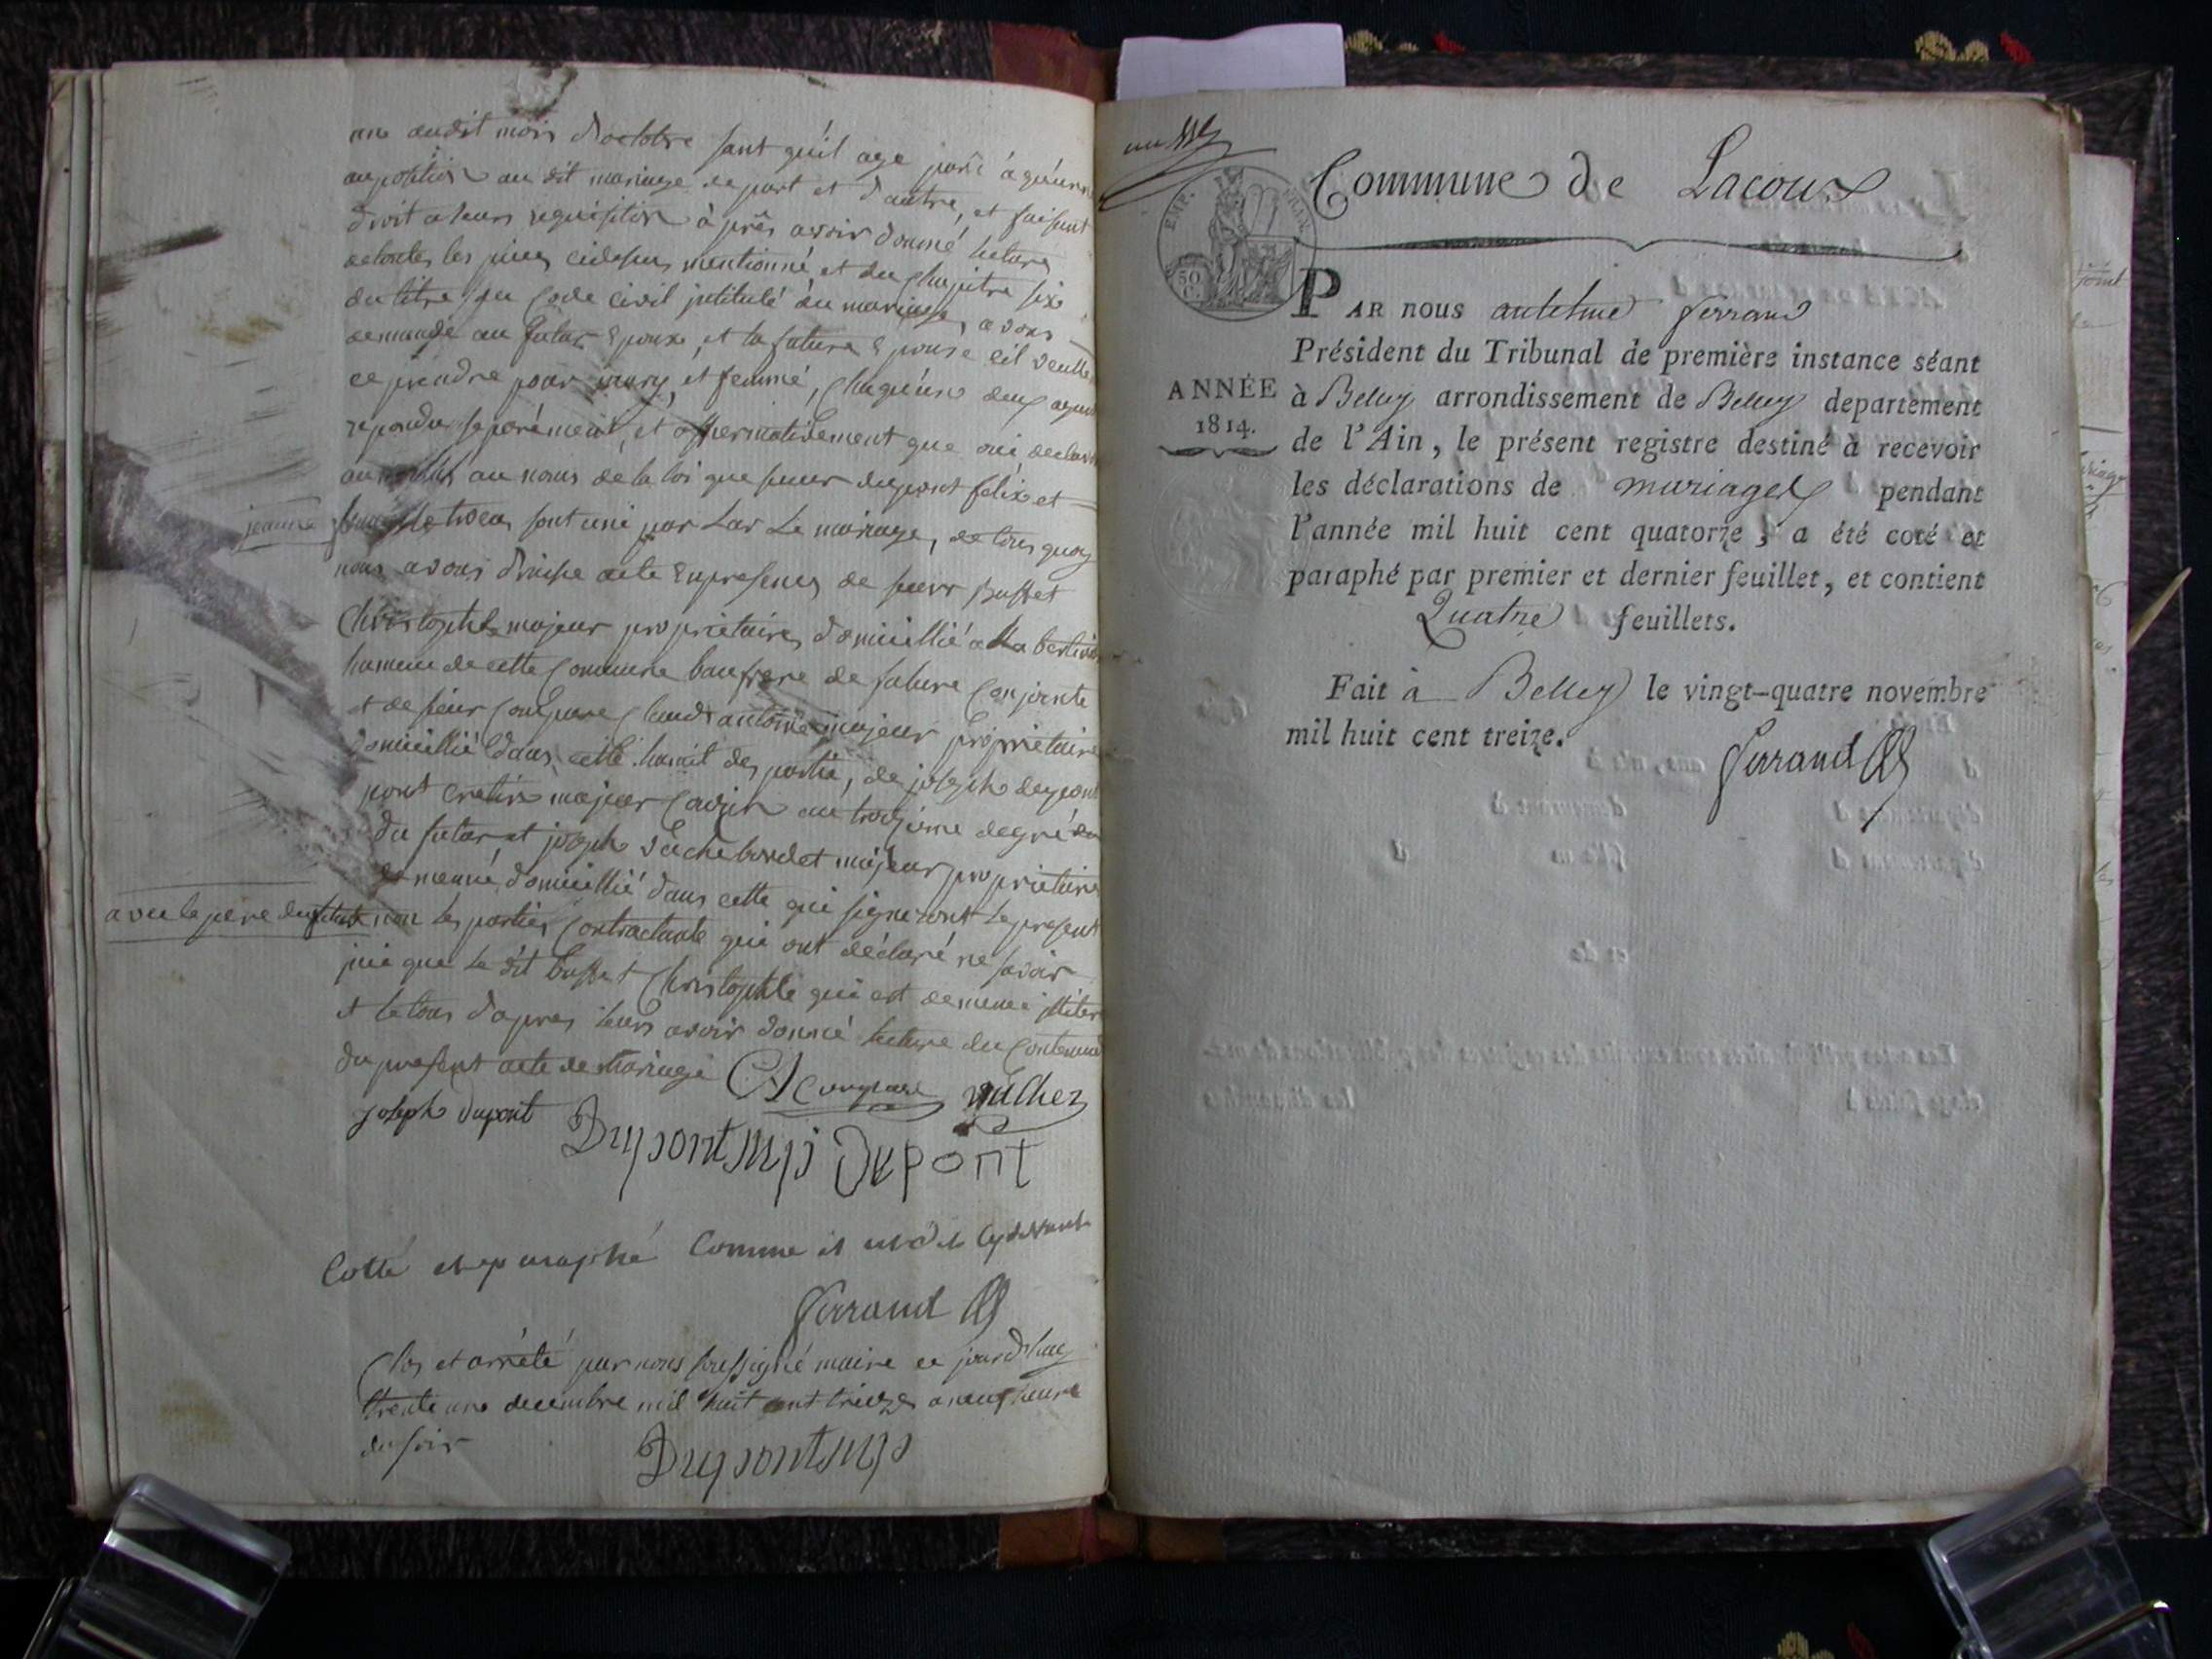 une audit mois d'octobre sant qu'il aye paru à qu'une
oupositis au dit mariage de part et d'autre, et faisant
droit a leurs requisition à près avoir donné lecture
de toutes les pieces cidesus mentionné et du chapitre six
du titre du Code Civil jntitulé du mariage, avons
demandé au futur Epoux, et la future Epouse cil veulle
ce prendre pour mary, et femme, chaqu'un deux ayant
repondu séparément, et affermativement que oui, declarons
au nom de la loi que sieur dupont felix et
jeanne
sont uni par Lar Le mariage, de tous quoy
nous avons draisse acte En presences de sieur Busset
Christophle majeur proprietaire domicillié a La
hameau de cette Commune baufrere de future Conjointe
et de sieur Compare Claude antoine majeur proprietaire
domicillié dans cette hamit des partie, de joseph dupont
pont majeur Couzin au troizieme degré du
du futur, et joseph vuche bordet majeur proprietaire
domicillié dans cette qui signeront le present
avec le pere du futur
non les parties Contractante qui ont déclaré ne savoir
jnci que le dit Busset Christophle qui est de meme jlliteré
et le tous d'apres leurs avoir donné lecture du Contenue
du present acte de Mariage CA Compare vuchez
joseph dupont Dupont mp Dupont
Cotté et paraphé Comme il est dit Cydevant
Ferrand
Clos et arrété par nous soussigné maire ce jourd'huy
trente une decembre mil huit cent treize a neuf heure
du soir
Dupont mp
un
EMP. FRAN.
50 C.
Commune de Lacoux
PAR nous antelme ferrand
Président du Tribunal de première instance séant
ANNÉE
1814.
à Belley arrondissement de Belley departement
de l'Ain, le présent registre destiné à recevoir
les déclarations de mariages pendant
l'année mil huit cent quatorze, a été coté et
paraphé par premier et dernier feuillet, et contient
Quatre feuillets.
Fait à Belley le vingt-quatre novembre
mil huit cent treize.
Ferrand